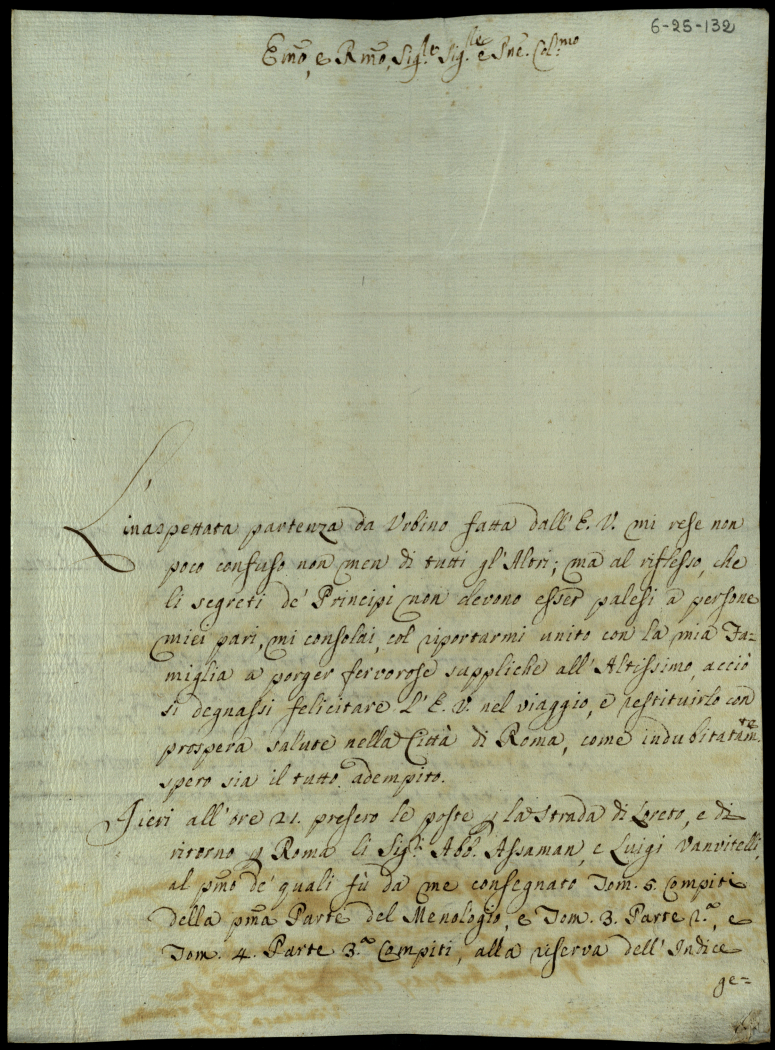 6-25-132
Emo, e Rmo, Sig.r Sig.le e Pne. Col.mo
L'inaspettata partenza da Urbino fatta dall'E. V. mi rese non
poco confuso non men di tutti gl'Altri; ma al riflesso, che
li segreti de' Principi non devono esser palesi a persone
miei pari, mi consolai, col riportarmi unito con la mia Fa=
miglia a porger fervorose suppliche all'Altissimo, acciò
si degnassi felicitare l'E. V. nel viaggio, e restituirlo con
prospera salute nella Città di Roma, come indubitatam.te
spero sia il tutto adempito.
Jieri all'ore 21. presero le poste p la Strada di Loreto, e di
ritorno p Roma li Sig.ri Abb.e Assaman, e Luigi Vanvitelli,
al pmo de' quali fù da me consegnato Tom. 5. Compiti
della pma Parte del Menologio, e Tom. 3. Parte 2.a, e
Tom. 4. Parte 3.a Compiti, alla riserva dell'Indice
ge=